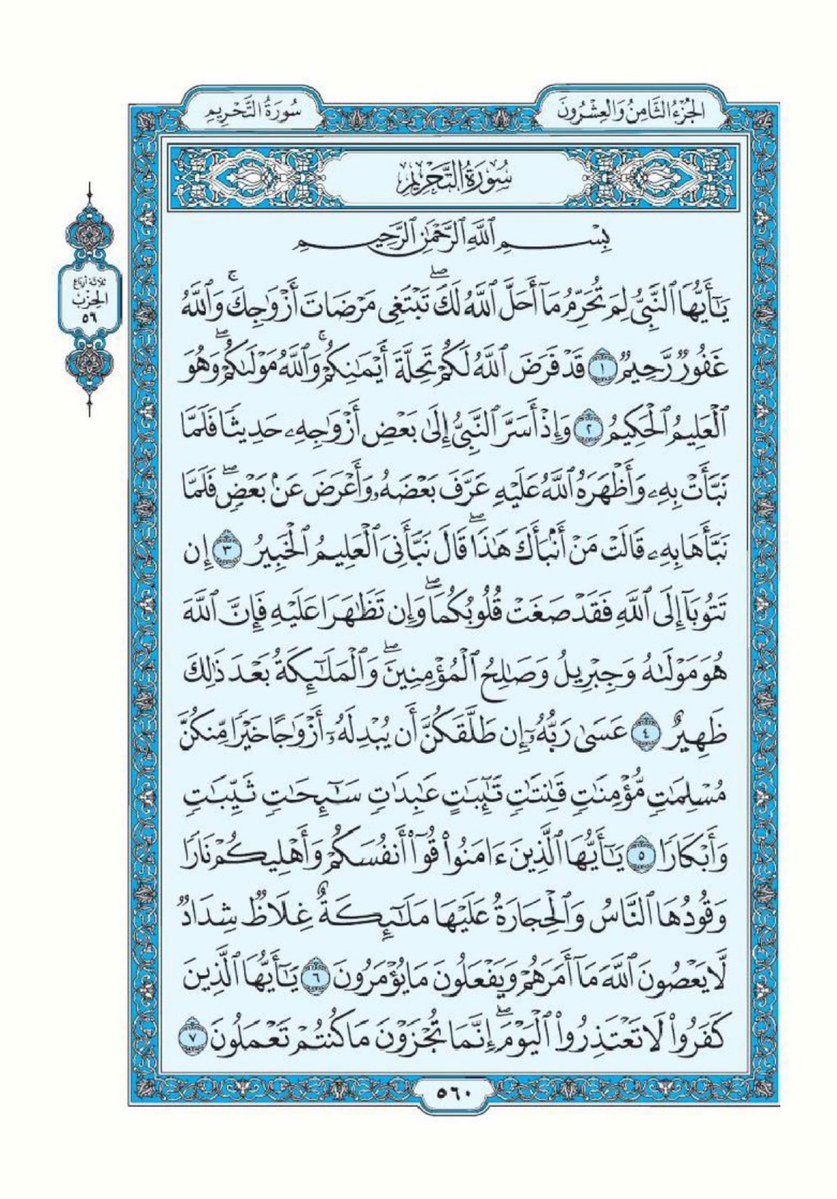 الجزء الثامن والعشرون
سورة التحريم
سُورَةُ التَّحۡرِيمِ
بِسۡمِ ٱللَّهِ ٱلرَّحۡمَٰنِ ٱلرَّحِيمِ
يَٰٓأَيُّهَا ٱلنَّبِيُّ لِمَ تُحَرِّمُ مَآ أَحَلَّ ٱللَّهُ لَكَۖ تَبۡتَغِي مَرۡضَاتَ أَزۡوَٰجِكَۚ وَٱللَّهُ
غَفُورٞ رَّحِيمٞ ١ قَدۡ فَرَضَ ٱللَّهُ لَكُمۡ تَحِلَّةَ أَيۡمَٰنِكُمۡۚ وَٱللَّهُ مَوۡلَىٰكُمۡۖ وَهُوَ
ٱلۡعَلِيمُ ٱلۡحَكِيمُ ٢ وَإِذۡ أَسَرَّ ٱلنَّبِيُّ إِلَىٰ بَعۡضِ أَزۡوَٰجِهِۦ حَدِيثٗا فَلَمَّا
نَبَّأَتۡ بِهِۦ وَأَظۡهَرَهُ ٱللَّهُ عَلَيۡهِ عَرَّفَ بَعۡضَهُۥ وَأَعۡرَضَ عَنۢ بَعۡضٖۖ فَلَمَّا
نَبَّأَهَا بِهِۦ قَالَتۡ مَنۡ أَنۢبَأَكَ هَٰذَاۖ قَالَ نَبَّأَنِيَ ٱلۡعَلِيمُ ٱلۡخَبِيرُ ٣ إِن
تَتُوبَآ إِلَى ٱللَّهِ فَقَدۡ صَغَتۡ قُلُوبُكُمَاۖ وَإِن تَظَٰهَرَا عَلَيۡهِ فَإِنَّ ٱللَّهَ
هُوَ مَوۡلَىٰهُ وَجِبۡرِيلُ وَصَٰلِحُ ٱلۡمُؤۡمِنِينَۖ وَٱلۡمَلَٰٓئِكَةُ بَعۡدَ ذَٰلِكَ
ظَهِيرٌ ٤ عَسَىٰ رَبُّهُۥٓ إِن طَلَّقَكُنَّ أَن يُبۡدِلَهُۥٓ أَزۡوَٰجًا خَيۡرٗا مِّنكُنَّ
مُسۡلِمَٰتٖ مُّؤۡمِنَٰتٖ قَٰنِتَٰتٖ تَٰٓئِبَٰتٍ عَٰبِدَٰتٖ سَٰٓئِحَٰتٖ ثَيِّبَٰتٖ
وَأَبۡكَارٗا ٥ يَٰٓأَيُّهَا ٱلَّذِينَ ءَامَنُواْ قُوٓاْ أَنفُسَكُمۡ وَأَهۡلِيكُمۡ نَارٗا
وَقُودُهَا ٱلنَّاسُ وَٱلۡحِجَارَةُ عَلَيۡهَا مَلَٰٓئِكَةٌ غِلَاظٞ شِدَادٞ
لَّا يَعۡصُونَ ٱللَّهَ مَآ أَمَرَهُمۡ وَيَفۡعَلُونَ مَا يُؤۡمَرُونَ ٦ يَٰٓأَيُّهَا ٱلَّذِينَ
كَفَرُواْ لَا تَعۡتَذِرُواْ ٱلۡيَوۡمَۖ إِنَّمَا تُجۡزَوۡنَ مَا كُنتُمۡ تَعۡمَلُونَ ٧
ثلاثة أرباع
الحزب
٥٦
٥٦٠